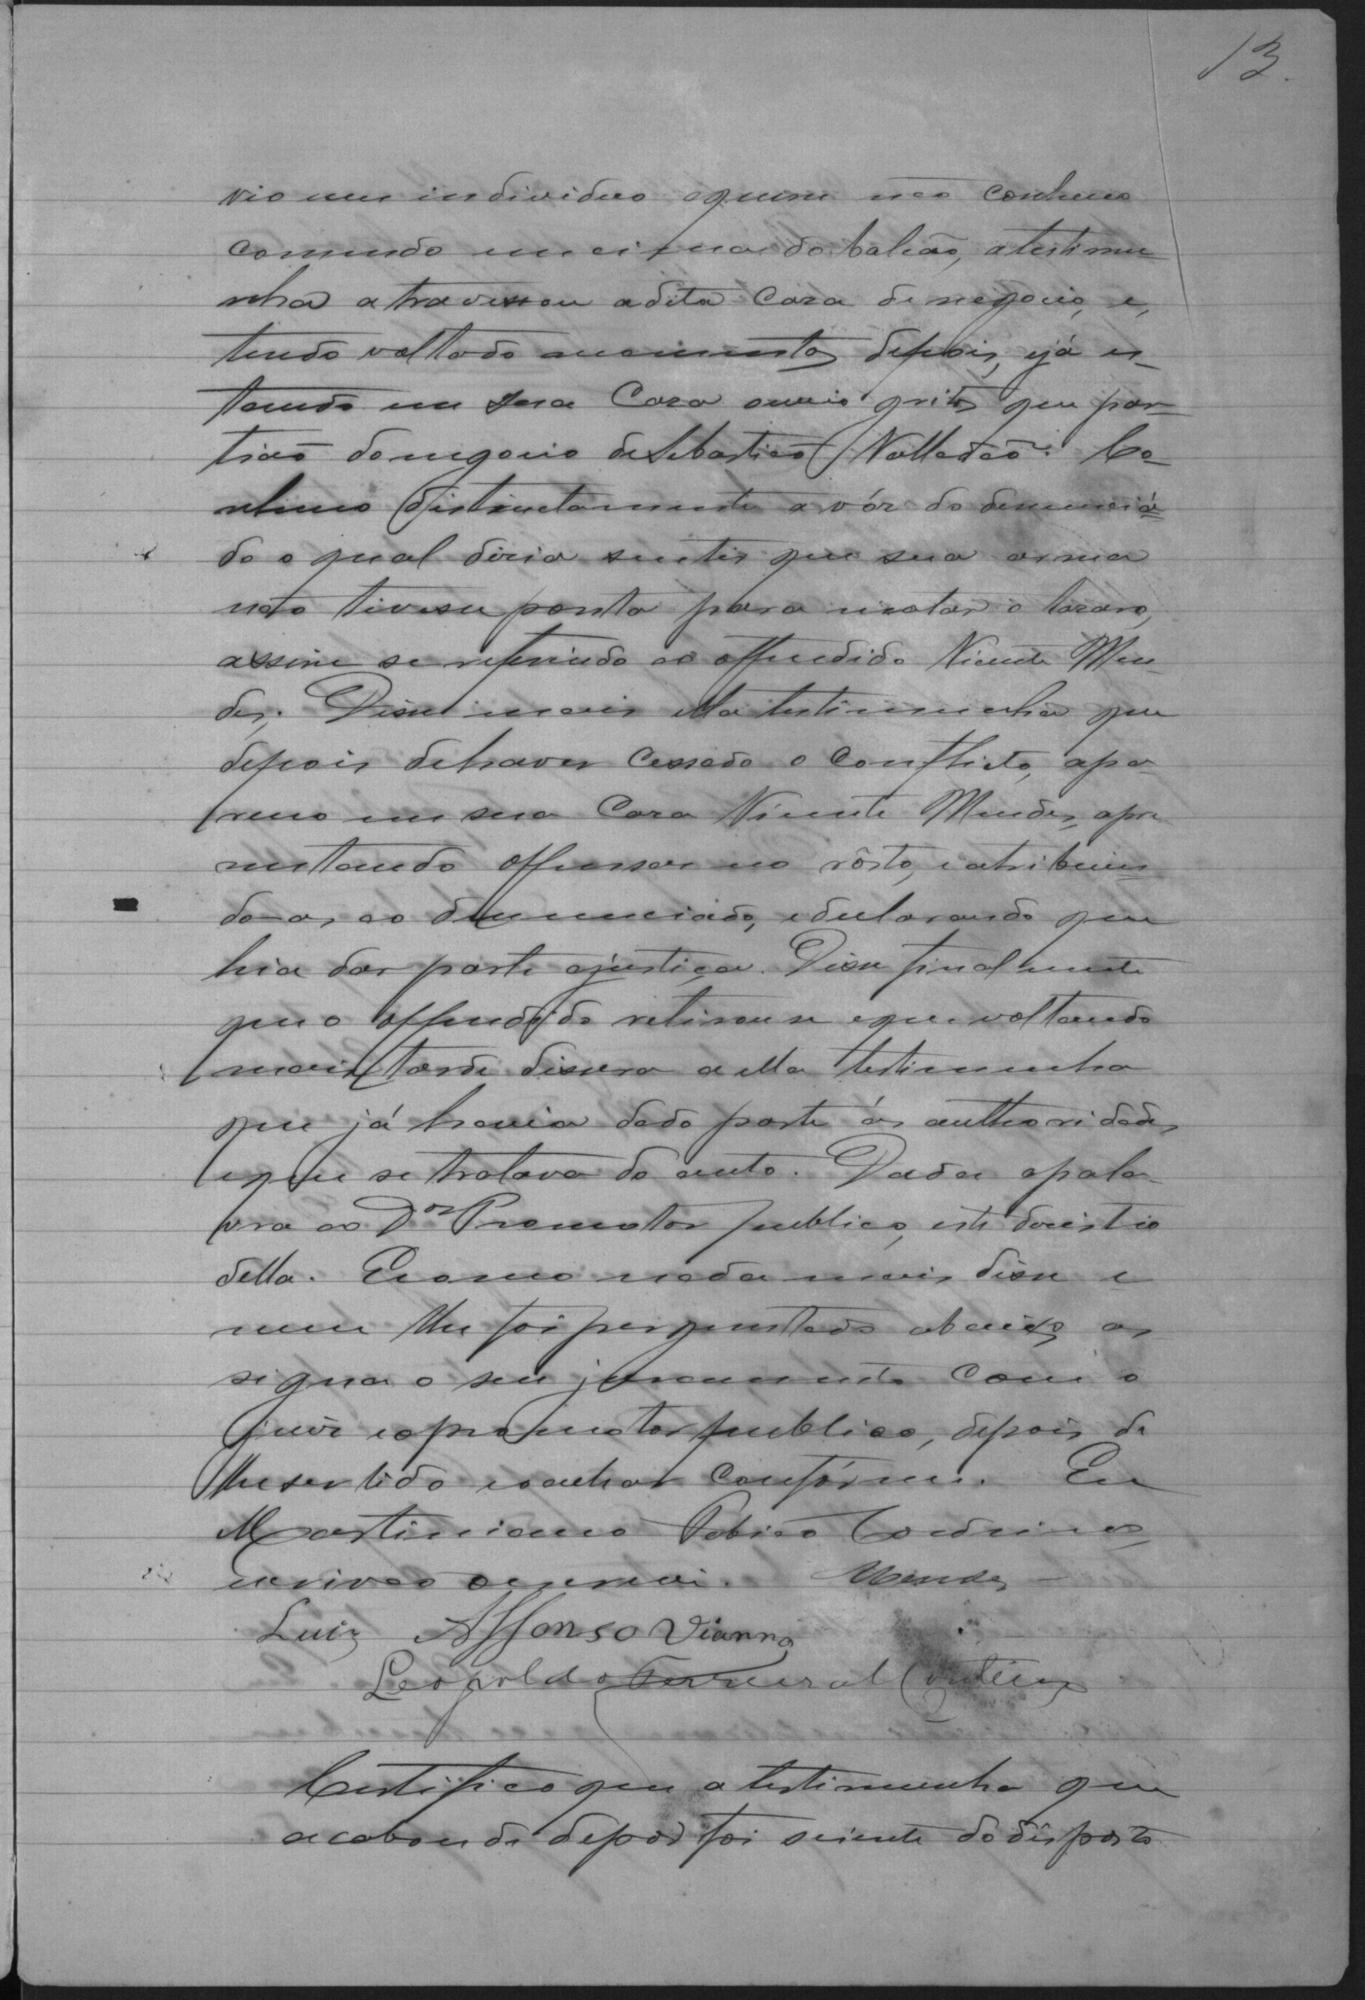 13.
vio um individuo aquem não conheceo
comendo em cima do balcão, a testimu
nha atravessou a dita Caza de negocio, e,
tendo voltado momentos depois, ejá es-
tando em sua Caza ouvio gritos que par-
tião do negocio de Sebastião Valladão. Co-
nheceo distinctamente a vóz do denunciá-
do o qual dizia sentir que sua arma
não tivesse ponta para matar o
assim se referindo ao offendido Vicente Men-
des. Disse mais ella testimunha que
depois dehaver cessado o Conflicto, apa-
receo em sua Caza Vicente Mendes, apre
sentando offensas no rôsto, e atribuin-
do-as ao denunciado, edeclarando que
hia dar parte ajustiça. Disse finalmente
que o offendido retirou se eque voltando
mais tarde dissera a ella testimunha
que já havia dado parte ás authoridades,
eque se tratava do auto. Dada apala-
vra ao Dor Promotor publico, este dezistio
della. E como nada mais disse e
nem lhe foi perguntado abaixo as
signa o seu juramento com o
juiz eopromotor publico, depois de
lheser lido eachar confórme. Eu
Martiniano Fabião Coutinho
escrivão o escrevi. Mendes
Luiz Affonso Vianna
Leopoldo
Certifico que a testimunha que
acabou de depôr foi sciente do disposto